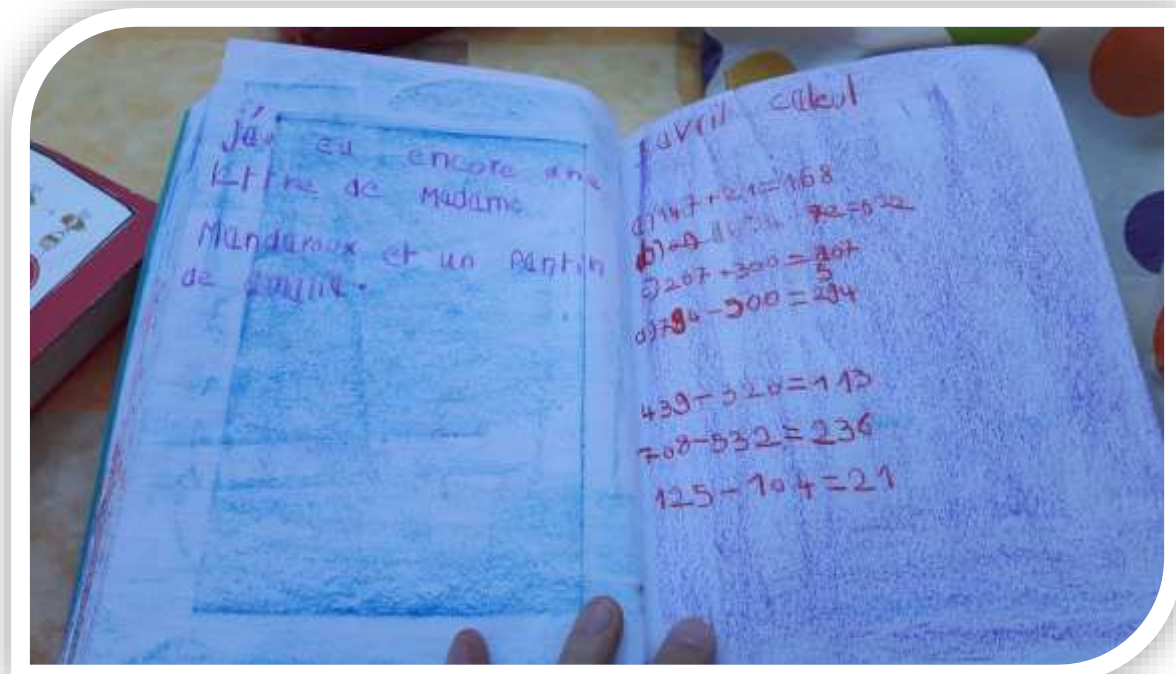 J'ai eu encore une
lettre de Madame
Mandaroux et un pantin
de
avril calcul
a) 147+21=168
72=532
c) 207+300=507
d) 794-500=294
439-320=113
708-532=236
125-104=21